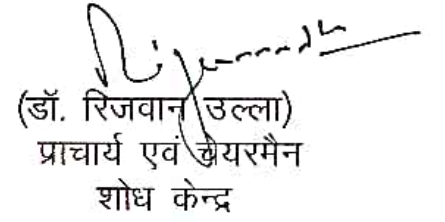 (डॉ. रिजवान उल्ला)
प्राचार्य एवं चेयरमैन
शोध केन्द्र